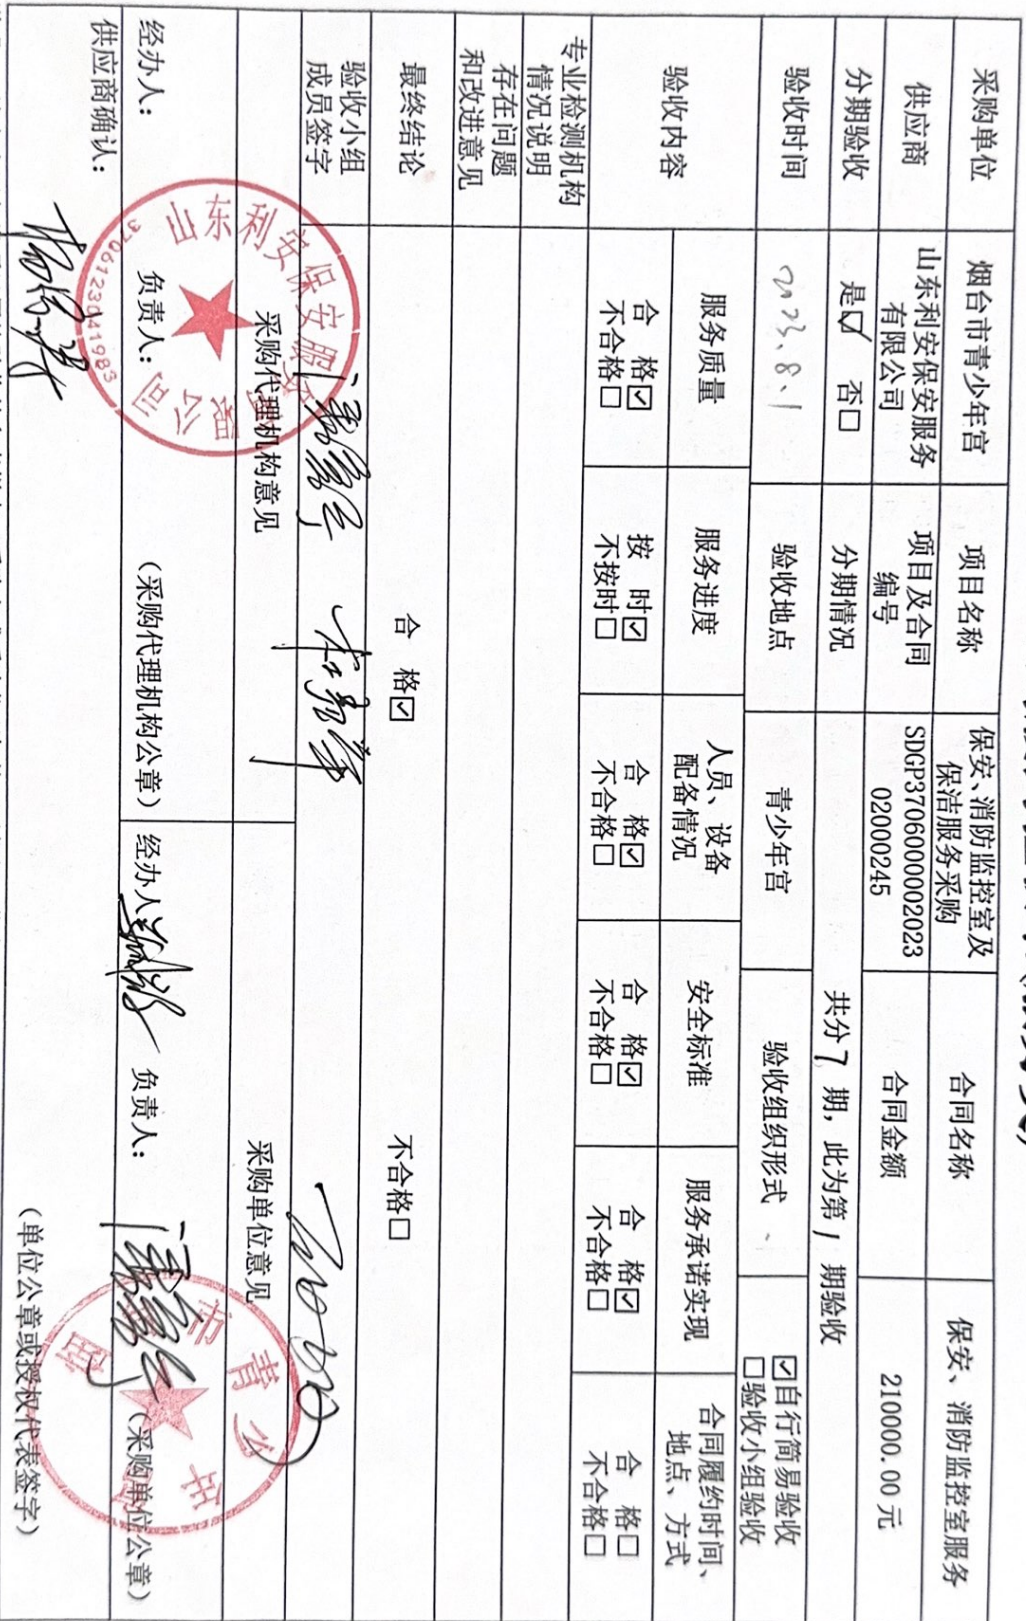 采购单位
烟台市青少年宫
项目名称
保安、消防监控室及
保洁服务采购
合同名称
保安、消防监控室服务
供应商
山东利安保安服务
有限公司
项目及合同
编号
SDGP3706000002023
02000245
合同金额
210000.00 元
分期验收
是☑ 否□
分期情况
共分 7 期，此为第 1 期验收
验收时间
2023.8.1
验收地点
青少年宫
验收组织形式
☑自行简易验收
□验收小组验收
验收内容
服务质量
服务进度
人员、设备
配备情况
安全标准
服务承诺实现
合同履约时间、
地点、方式
合 格☑
不合格□
按 时☑
不按时□
合 格☑
不合格□
合 格☑
不合格□
合 格☑
不合格□
合 格□
不合格□
专业检测机构
情况说明
存在问题
和改进意见
最终结论
合 格☑
不合格□
验收小组
成员签字
采购代理机构意见
采购单位意见
经办人：
负责人：
（采购代理机构公章）
经办人
负责人：
（采购单位公章）
供应商确认：
（单位公章或授权代表签字）
山东利安保安服务有限公司
3706123041983
市青少年宫